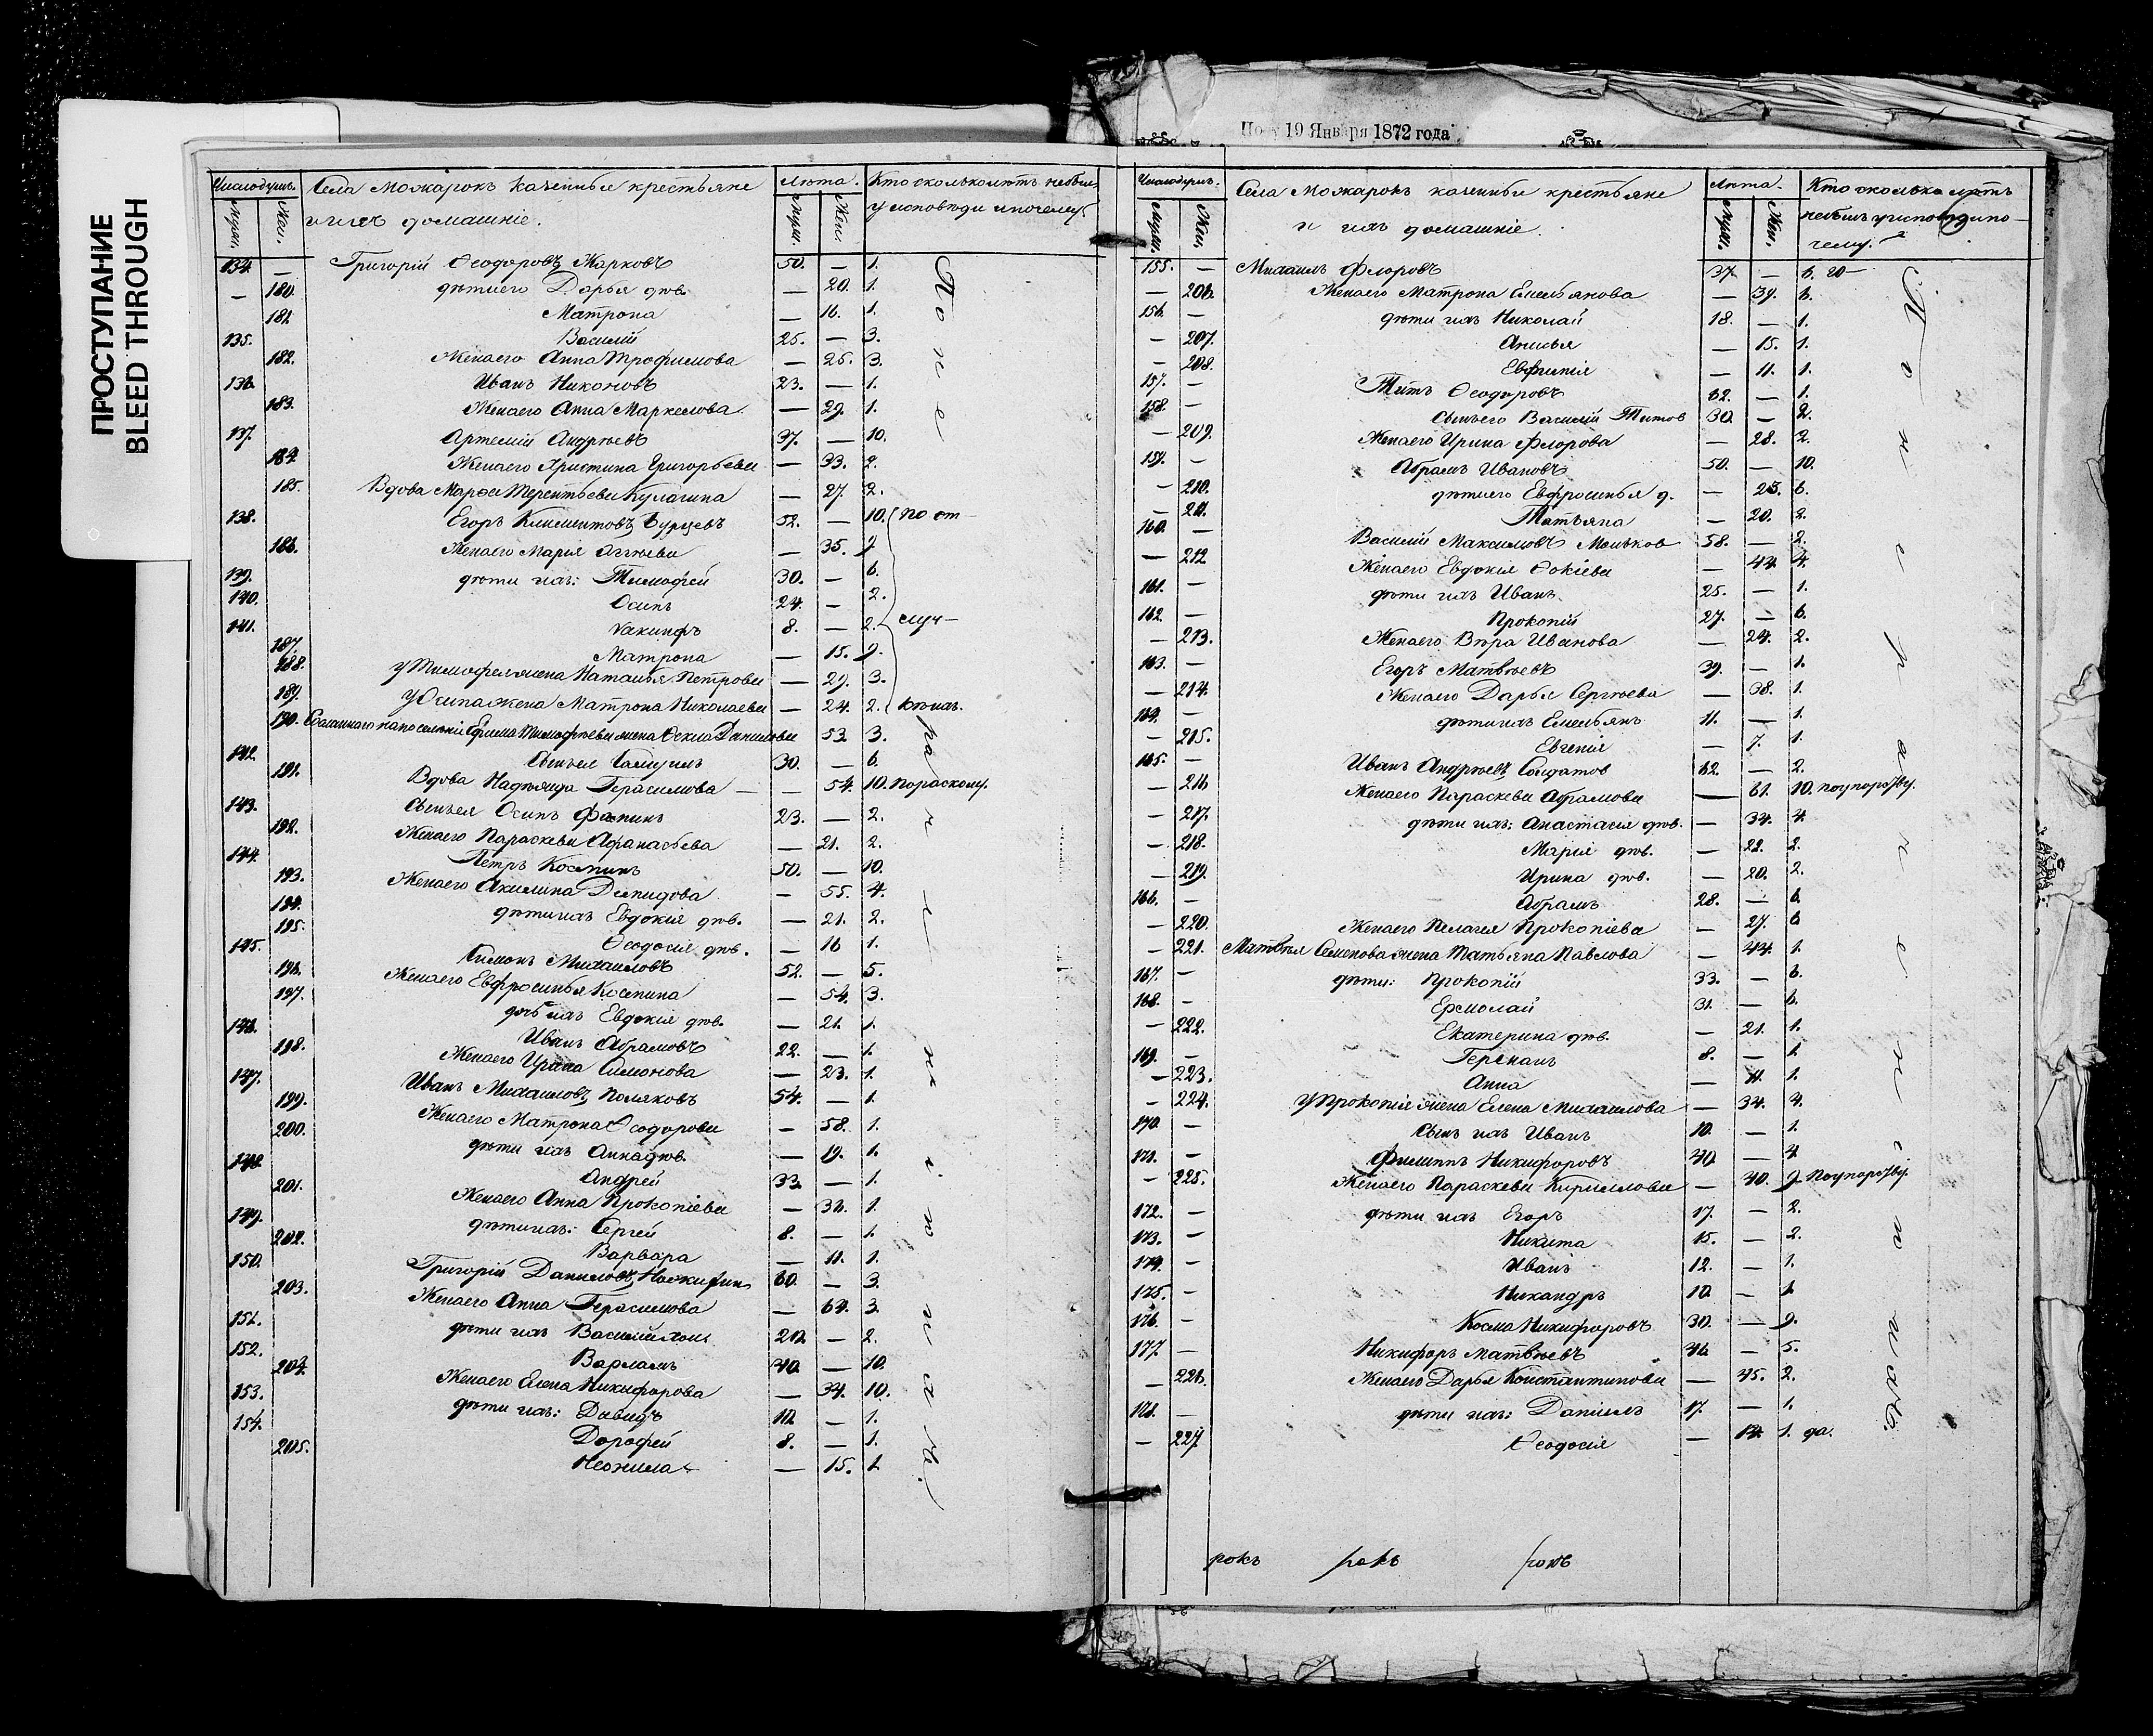 ПРОСТУПАНИЕ
BLEED THROUGH
19 Января 1872 года
Число душъ. Села Можарокъ казенные крестьяне Лѣта. Кто сколько лѣтъ небылъ
Муж. Жен. и ихъ домашніе. Муж. Жен. у исповѣди и почему.
134. — Григорій Ѳеодоровъ Жарковъ 50. — 1.
— 180. дѣти его Дарья дѣв. — 20. 1.
181. Матрона — 16. 1.
135. Василій 25. — 3.
182. Жена его Анна Трофимова — 25. 3.
136. Иванъ Никоновъ 23. — 1.
183. Жена его Анна Маркелова — 29. 1.
137. Артемій Андреевъ 37. — 10.
184. Жена его Христина Григорьева — 33. 2.
185. Вдова Марѳа Терентьева Кулагина — 27. 2.
138. Егоръ Климентовъ Бурцевъ 52. — 10. по от-
186. Жена его Марія — 35. 2
139. дѣти ихъ: Тимофей 30. — 6.
140. Осипъ 24. — 2.
141. Иакинфъ 8. — 2. луч-
187. Матрона — 15. 2.
188. у Тимофея жена Наталья Петрова — 29. 3.
189. у Осипа жена Матрона Николаева — 24. 2.
190. Ефима Тимофеева жена Ѳекла Данилова 53. 3.
142. Сынъ ея Самуилъ 30. — 6.
191. Вдова Надежда Герасимова — — 54. 10. по расколу.
143. Сынъ ея Осипъ 23. — 2.
192. Жена его Параскева Афанасьева — 21. 2.
144. Петръ Козминъ 50. — 10.
193. Жена его Акилина Демидова — 55. 4.
194. дѣти ихъ Евдокія дѣв. — 21. 2.
195. Ѳеодосія дѣв. — 16 1.
145. Симонъ Михаиловъ 52. — 5.
196. Жена его Евфросинья Козмина — 54. 3.
197. дочь ихъ Евдокія дѣв. — 21. 1.
146. Иванъ Абрамовъ 22. — 1.
198. Жена его Ирина Симонова — 23. 1.
147. Иванъ Михаиловъ Поляковъ 54. — 1.
199. Жена его Матрона Ѳеодорова — 58. 1.
200. дѣти ихъ Анна дѣв. — 19. 1.
148. Андрей 33. — 1.
201. Жена его Анна Прокопіева — 36. 1.
149. дѣти ихъ: Сергей 8. — 1.
202. Варвара — 11. 1.
150. Григорій Даниловъ 60. — 3.
203. Жена его Анна Герасимова — 64. 3.
151. дѣти ихъ Василій 20. — 2.
152. Варлаамъ 40. — 10.
204. Жена его Елена Никифорова — 34. 10.
153. дѣти ихъ: Давидъ 10. — 1.
154. Дорофей 8. — 1.
205. Неонила — 15. 1.
Число душъ. Села Можарокъ казенные крестьяне Лѣта. Кто сколько лѣтъ
Муж. Жен. и ихъ домашніе. Муж. Жен. небылъ у исповѣди и по-
чему.
155. — Михаилъ Флоровъ 37. — 6.
— 206. Жена его Матрона Емельянова — 39. 6.
156. — дѣти ихъ Николай 18. — 1.
— 207. Анисья — 15. 1.
— 208. Евфимія — 11. 1.
157. — Титъ Ѳеодоровъ 62. — 1.
158. — Сынъ его Василій Титовъ 30. — 2.
— 209. Жена его Ирина Флорова — 28. 2.
159. — Абрамъ Ивановъ 50. — 10.
— 210. дѣти его Евфросинья д. — 25. 6.
— 211. Татьяна — 20. 2.
160. — Василій Максимовъ 58. — 2.
— 212 Жена его Евдокія — 44. 4.
161. — дѣти ихъ Иванъ 25. — 1.
162. — Прокопій 27. — 6.
— 213. Жена его Вѣра Иванова — 24. 2.
163. — Егоръ Матвѣевъ 39. — 1.
— 214. Жена его Дарья Сергѣева — 38. 1.
164. — дѣти ихъ Емельянъ 11. — 1.
— 215. Евгенія — 7. 1.
165. — Иванъ Андреевъ Солдатов 62. — 2.
— 216 Жена его Параскева Абрамова — 61. 10.
— 217. дѣти ихъ: Анастасія дѣв. — 34. 4.
— 218. Марія дѣв. — 22. 2.
— 219. Ирина дѣв. — 20. 2.
166. — Абрамъ 28. — 6.
— 220. Жена его Пелагея Прокопіева — 27. 6
— 221. Матвѣя Семенова жена Татьяна Павлова — 44. 1.
167. — дѣти: Прокопій 33. — 6.
168. — Ермолай 31. — 6.
— 222. Екатерина дѣв. — 21. 1.
169. — Германъ 8. — 1.
— 223. Анна — 11. 1.
— 224. у Прокопія жена Елена Михаилова — 34. 4.
170. — Сынъ ихъ Иванъ 10. — 1.
171. — Филиппъ Никифоровъ 40. — 4
— 225. Жена его Параскева Кириллова — 40. 9.
172. — дѣти ихъ Егоръ 17. — 2.
173. — Никита 15. — 2.
174. — Иванъ 12. — 1.
175. — Никандръ 10. — 1
176. — Косма Никифоровъ 30. — 9.
177. — Никифоръ Матвѣевъ 46. — 5.
— 226. Жена его Дарья Константинова — 45. 2.
— дѣти ихъ: Даніилъ 17. — 1.
— 227. Ѳеодосія — 14. 1. да.
рокъ рокъ рокъ